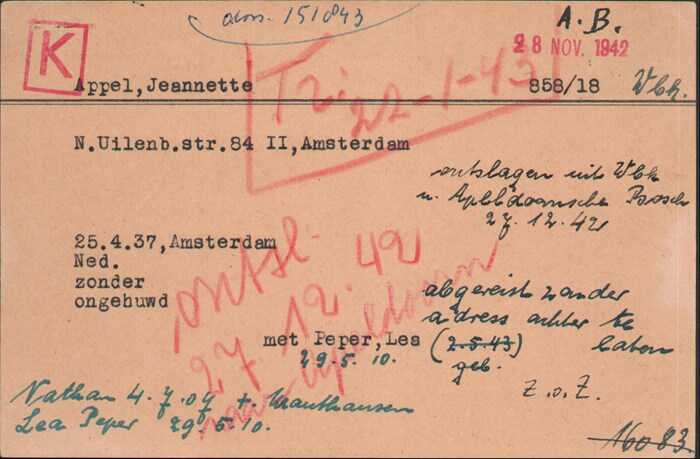 doss. 151843
A.B.
28 NOV. 1942
K
Appel, Jeannette
858/18
Wbk.
Tr. 22-1-43
N.Uilenb.str.84 II, Amsterdam
ontslagen uit Wbk
n. Apeldoornsche Bosch
27.12.42
25.4.37, Amsterdam
Ned.
zonder
ongehuwd
ontsl.
27.12.42
naar Apeldoorn
abgereist zonder
adress achter te
laten
(2.5.43)
geb.
met Peper, Lea
29.5.10.
Z.o.Z.
Nathan 4.7.07 + Mauthausen
Lea Peper 29.5.10.
16083